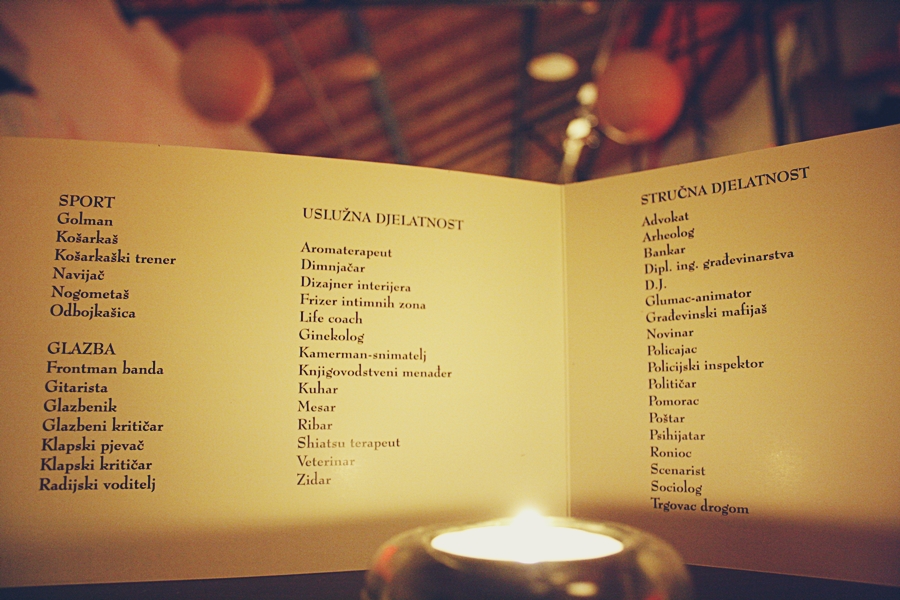 SPORT
Golman
Košarkaš
Košarkaški trener
Navijač
Nogometaš
Odbojkašica
GLAZBA
Frontman banda
Gitarista
Glazbenik
Glazbeni kritičar
Klapski pjevač
Klapski kritičar
Radijski voditelj
USLUŽNA DJELATNOST
Aromaterapeut
Dimnjačar
Dizajner interijera
Frizer intimnih zona
Life coach
Ginekolog
Kamerman-snimatelj
Knjigovodstveni menader
Kuhar
Mesar
Ribar
Shiatsu terapeut
Veterinar
Zidar
STRUČNA DJELATNOST
Advokat
Arheolog
Bankar
Dipl. ing. građevinarstva
D.J.
Glumac-animator
Građevinski mafijaš
Novinar
Policajac
Policijski inspektor
Političar
Pomorac
Poštar
Psihijatar
Ronioc
Scenarist
Sociolog
Trgovac drogom